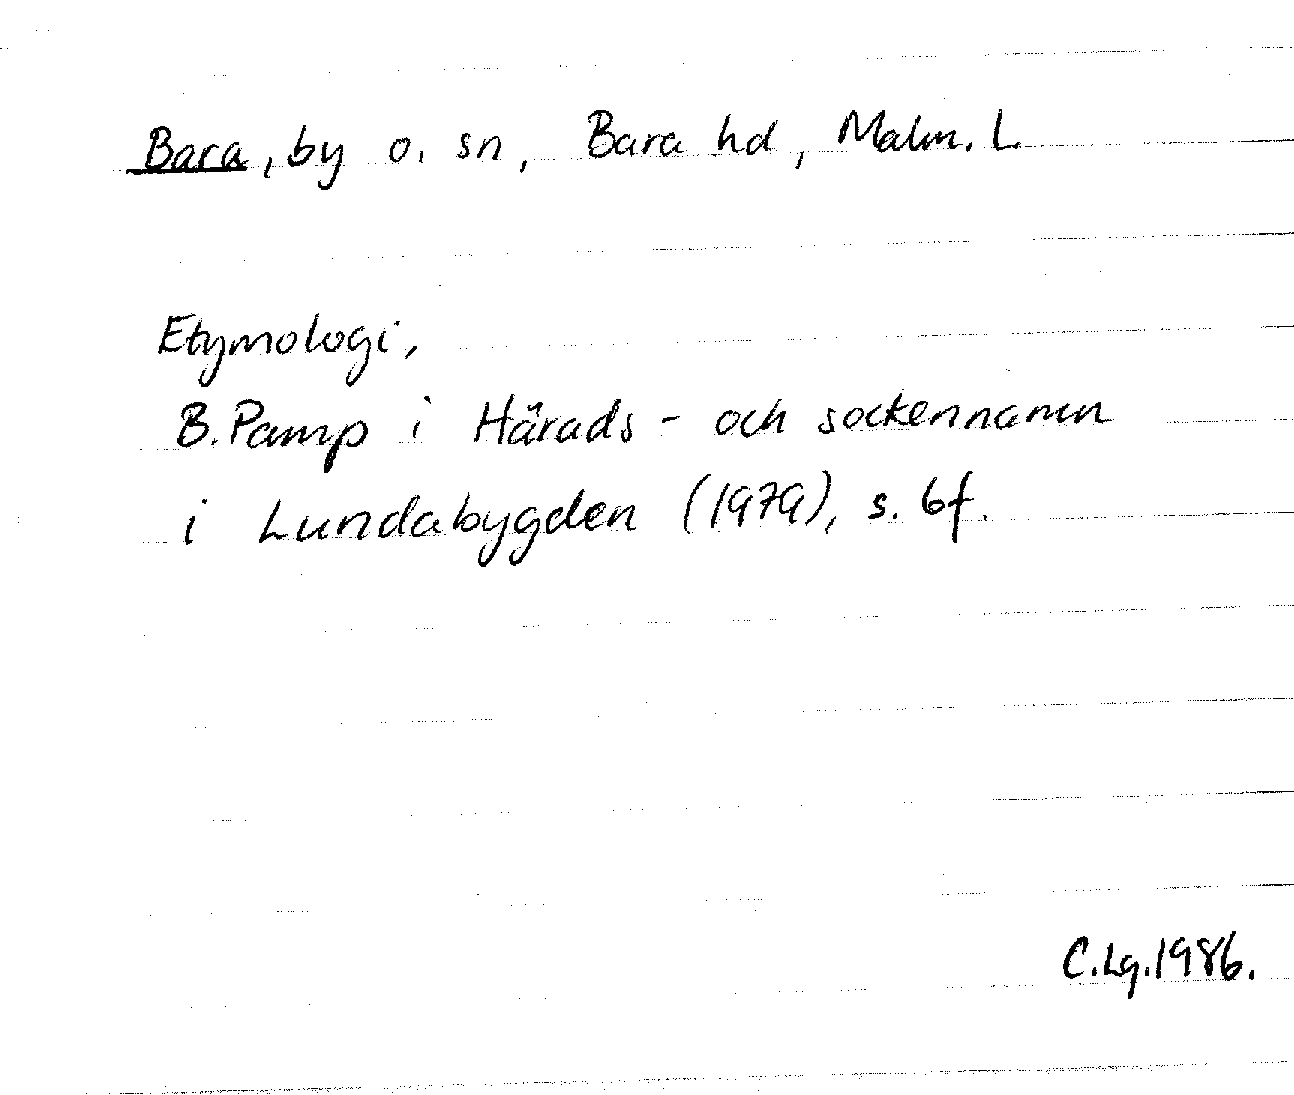 Bara, by o. sn, Bara hd, Malm. L.
Etymologi,
B. Pamp i Härads- och sockennamn
i Lundabygden (1979), s. 6f.
C.Lg.1986.